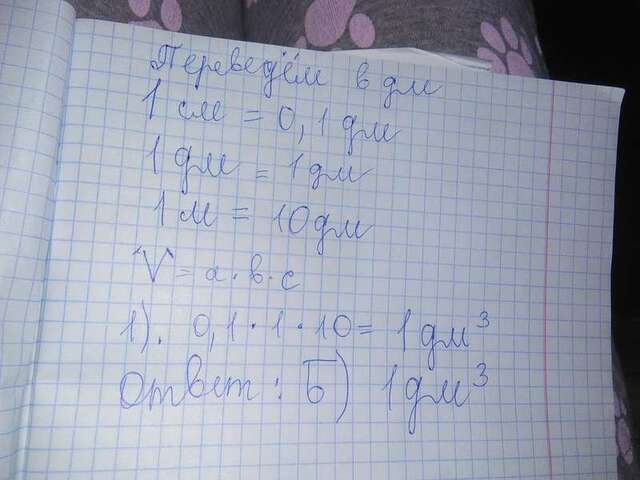 Переведём в дм
1 см = 0,1 дм
1 дм = 1 дм
1 м = 10 дм
"V" = а · в · с
1). 0,1 · 1 · 10 = 1 дм³
Ответ: Б) 1 дм³